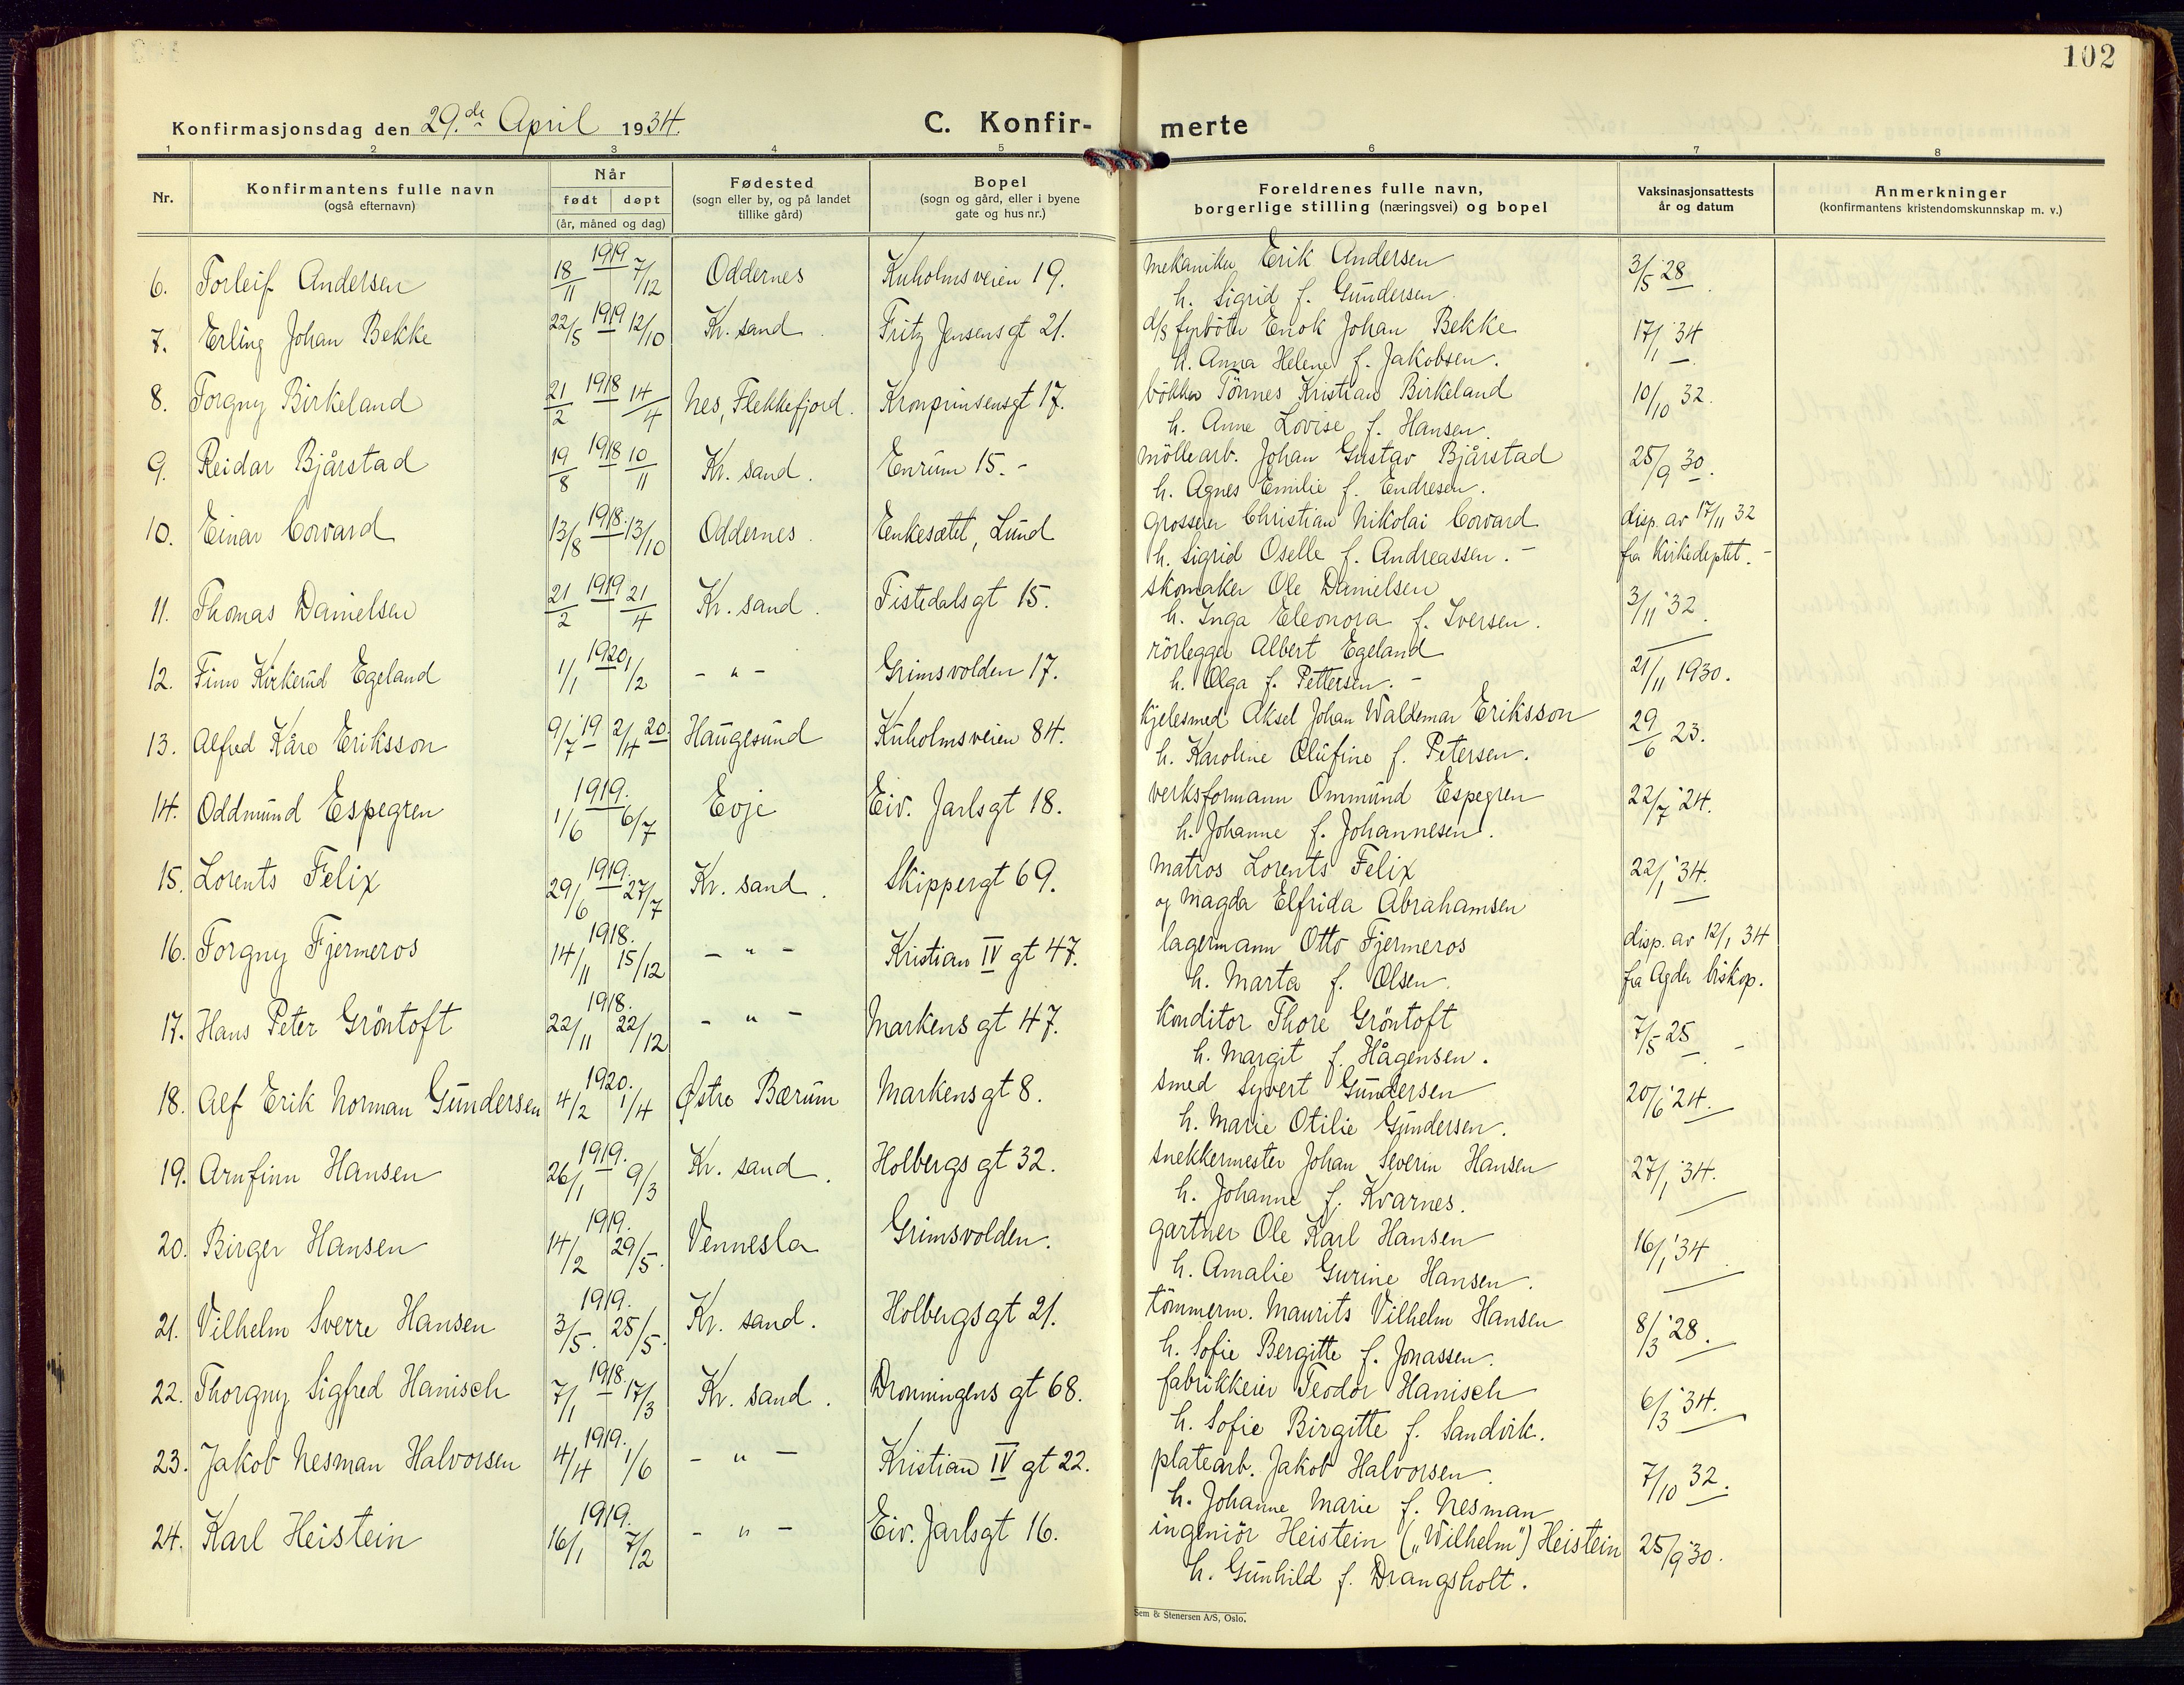 102
Konfirmasjonsdag den 29.de April 1934.
C. Konfir-merte
1 2 3 4 5 6 7 8
Nr.
Konfirmantens fulle navn
(også efternavn)
Når
født døpt
(år, måned og dag)
Fødested
(sogn eller by, og på landet
tillike gård)
Bopel
(sogn og gård, eller i byene
gate og hus nr.)
Foreldrenes fulle navn,
borgerlige stilling (næringsvei) og bopel
Vaksinasjonsattests
år og datum
Anmerkninger
(konfirmantens kristendomskunnskap m. v.)
6. Torleif Andersen 18/11 1919 7/12 Oddernes Kuholmsveien 19. mekaniker Erik Andersen 3/5 '28
h. Sigrid f. Gundersen.
7. Erling Johan Bekke 22/5 1919 12/10 Kr. sand. Fritz Jensens gt 21. d/s fyrböter Enok Johan Bekke 17/1 '34
h. Anna Helene f. Jakobsen.
8. Torgny Birkeland 21/2 1918 14/4 Nes, Flekkefjord. Kronprinsensgt 17. bökker Tönnes Kristian Birkeland 10/10 32.
h. Anne Lovise f. Hansen.
9. Reidar Bjårstad 19/8 1918 10/11 Kr. sand. Enrum 15. - möllearb. Johan Gustav Bjårstad 25/9 30.
h. Agnes Emilie f. Endresen.
10. Einar Corvard 13/8 1918. 13/10 Oddernes. Enkesætet, Lund grosserer Christian Nikolai Corvard disp. av 17/11 32
h. Sigrid Oselle f. Andreassen. - fra Kirkedeptet. -
11. Thomas Danielsen 21/2 1919 21/4 Kr. sand. Tistedalsgt 15. skomaker Ole Danielsen 3/11 '32
h. Inga Eleonora f. Iversen.
12. Finn Kirkerud Egeland 1/1 1920 1/2 - " - Grimsvolden 17. rörlegger Albert Egeland 21/11 1930.
h. Olga f. Pettersen. -
13. Alfred Kåre Eriksson 9/7 '19 2/4 20. Haugesund Kuholmsveien 84. kjelesmed Aksel Johan Waldemar Eriksson 29/6 23.
h. Karoline Olufine f. Petersen.
14. Oddmund Espegren 1/6 1919. 6/7 Evje Eiv. Jarlsgt 18. verksformann Ommund Espegren 22/7 '24.
h. Johanne f. Johannesen.
15. Lorents Felix 29/6 1919. 27/7 Kr. sand. Skippergt 69. matros Lorents Felix 22/1 '34.
og Magda Elfrida Abrahamsen
16. Torgny Fjermeros 14/11 1918. 15/12 - " - Kristian IV gt 47. lagermann Otto Fjermeros disp. av 12/1 34
h. Marta f. Olsen. fra Agder biskop.
17. Hans Peter Gröntoft 22/11 1918. 22/12 - " - Markens gt 47. Konditor Thore Gröntoft 7/5 25. -
h. Margit f. Hågensen.
18. Alf Erik Norman Gundersen 4/2 1920. 1/4 Østre Bærum Markens gt 8. smed Syvert Gundersen 20/6 '24.
h. Marie Otilie Gundersen.
19. Arnfinn Hansen 26/1 1919. 9/3 Kr. sand. Holbergs gt 32. snekkermester Johan Severin Hansen 27/1 '34.
h. Johanne f. Kvarnes.
20. Birger Hansen 14/2 1919. 29/5. Vennesla Grimsvolden. gartner Ole Karl Hansen 16/1 '34
h. Amalie Gurine Hansen.
21. Vilhelm Sverre Hansen 3/5. 1919. 25/5. Kr. sand. Holbergsgt 21. tömmerm. Maurits Vilhelm Hansen 8/3 '28.
h. Sofie Bergitte f. Jonassen.
22. Thorgny Sigfred Hanisch 7/1 1918. 17/3 Kr. sand. Dronningens gt 68. fabrikkeier Teodor Hanisch 6/3 '34.
h. Sofie Birgitte f. Sandvik.
23. Jakob Nesman Halvorsen 4/4 1919. 1/6 - " - Kristian IV gt 22. platearb. Jakob Halvorsen. 7/10 32.
h. Johanne Marie f. Nesman
24. Karl Heistein 16/1 1919. 7/2 - " - Eiv. Jarlsgt 16. ingeniör Heistein („Wilhelm") Heistein 25/9 '30.
h. Gunhild f. Drangsholt.
Sem & Stenersen A/S, Oslo.